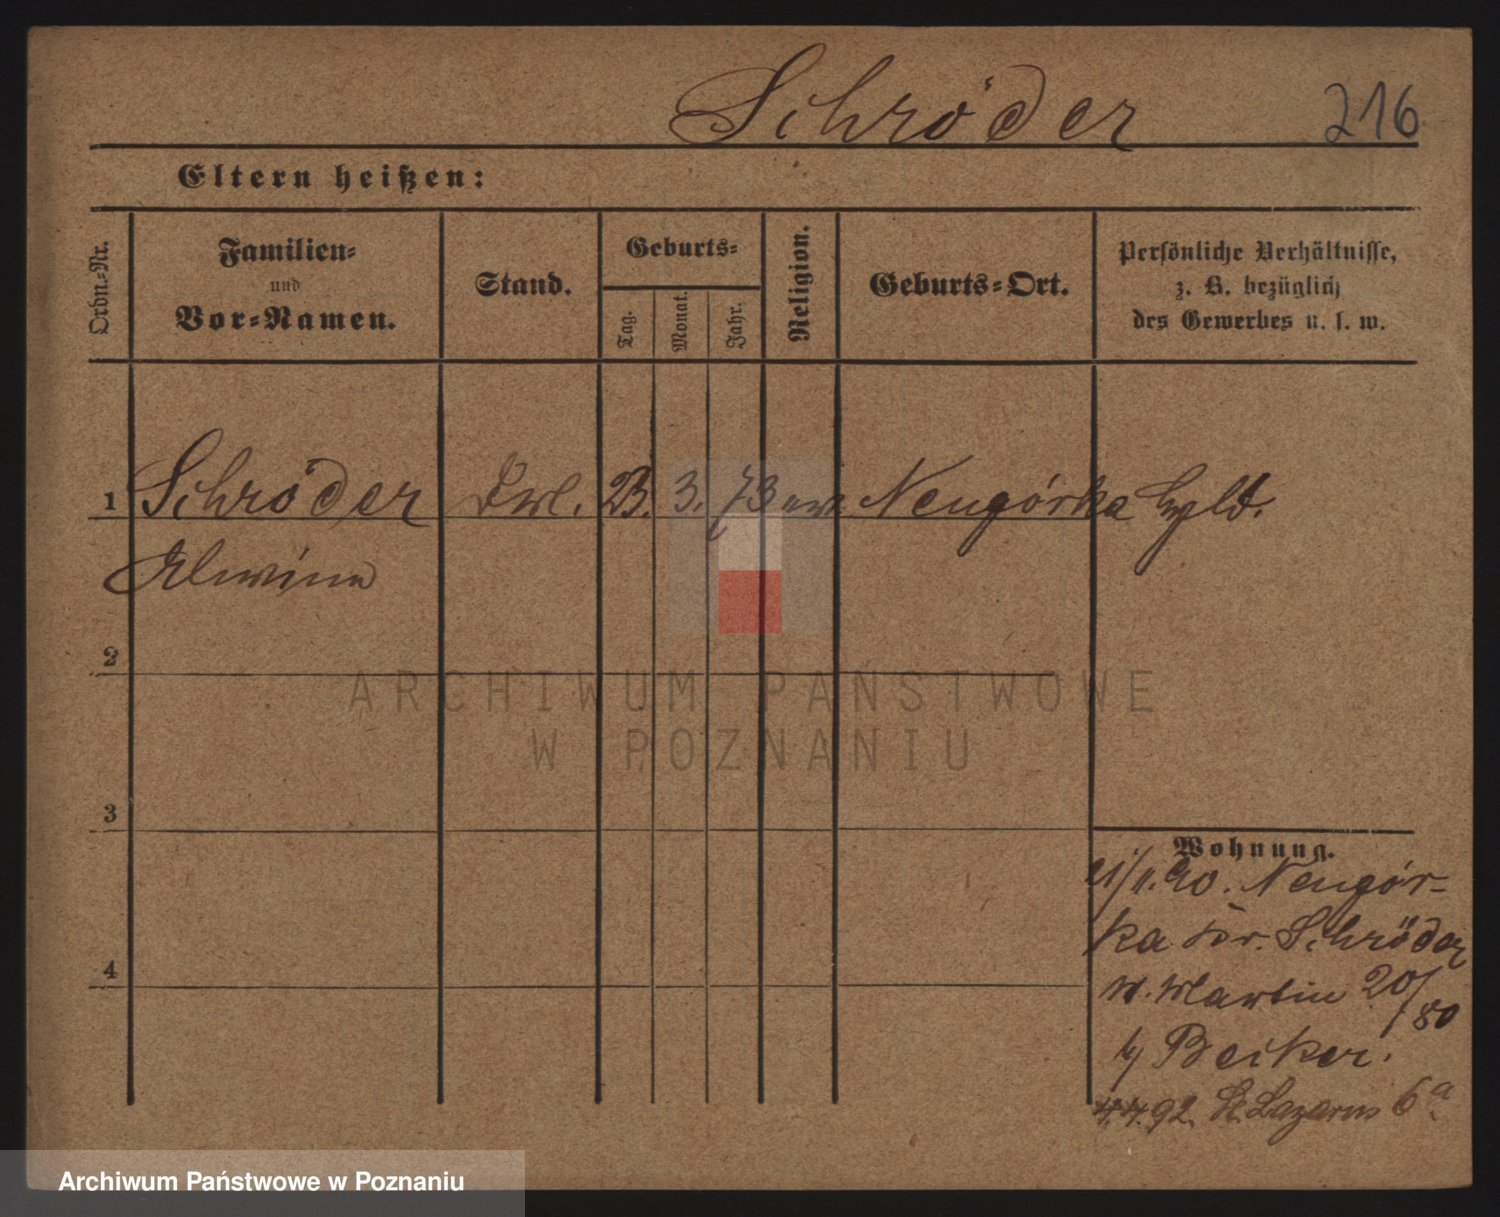 Schröder 216
Eltern heißen:
Ordn.-Nr.
Familien-
und
Vor-Namen.
Stand.
Geburts-
Tag.
Monat.
Jahr.
Religion.
Geburts-Ort.
Persönliche Verhältnisse,
z. B. bezüglich
des Gewerbes u. s. w.
1 Schröder 23. 3. 73 ev. Neugórka
Alwina
2
ARCHIWUM PAŃSTWOWE
W POZNANIU
3
Wohnung.
90. Neugór-
ka Schröder
Martin 20/
80
Becker.
4
4.4.92. St. Lazarus 6a
Archiwum Państwowe w Poznaniu